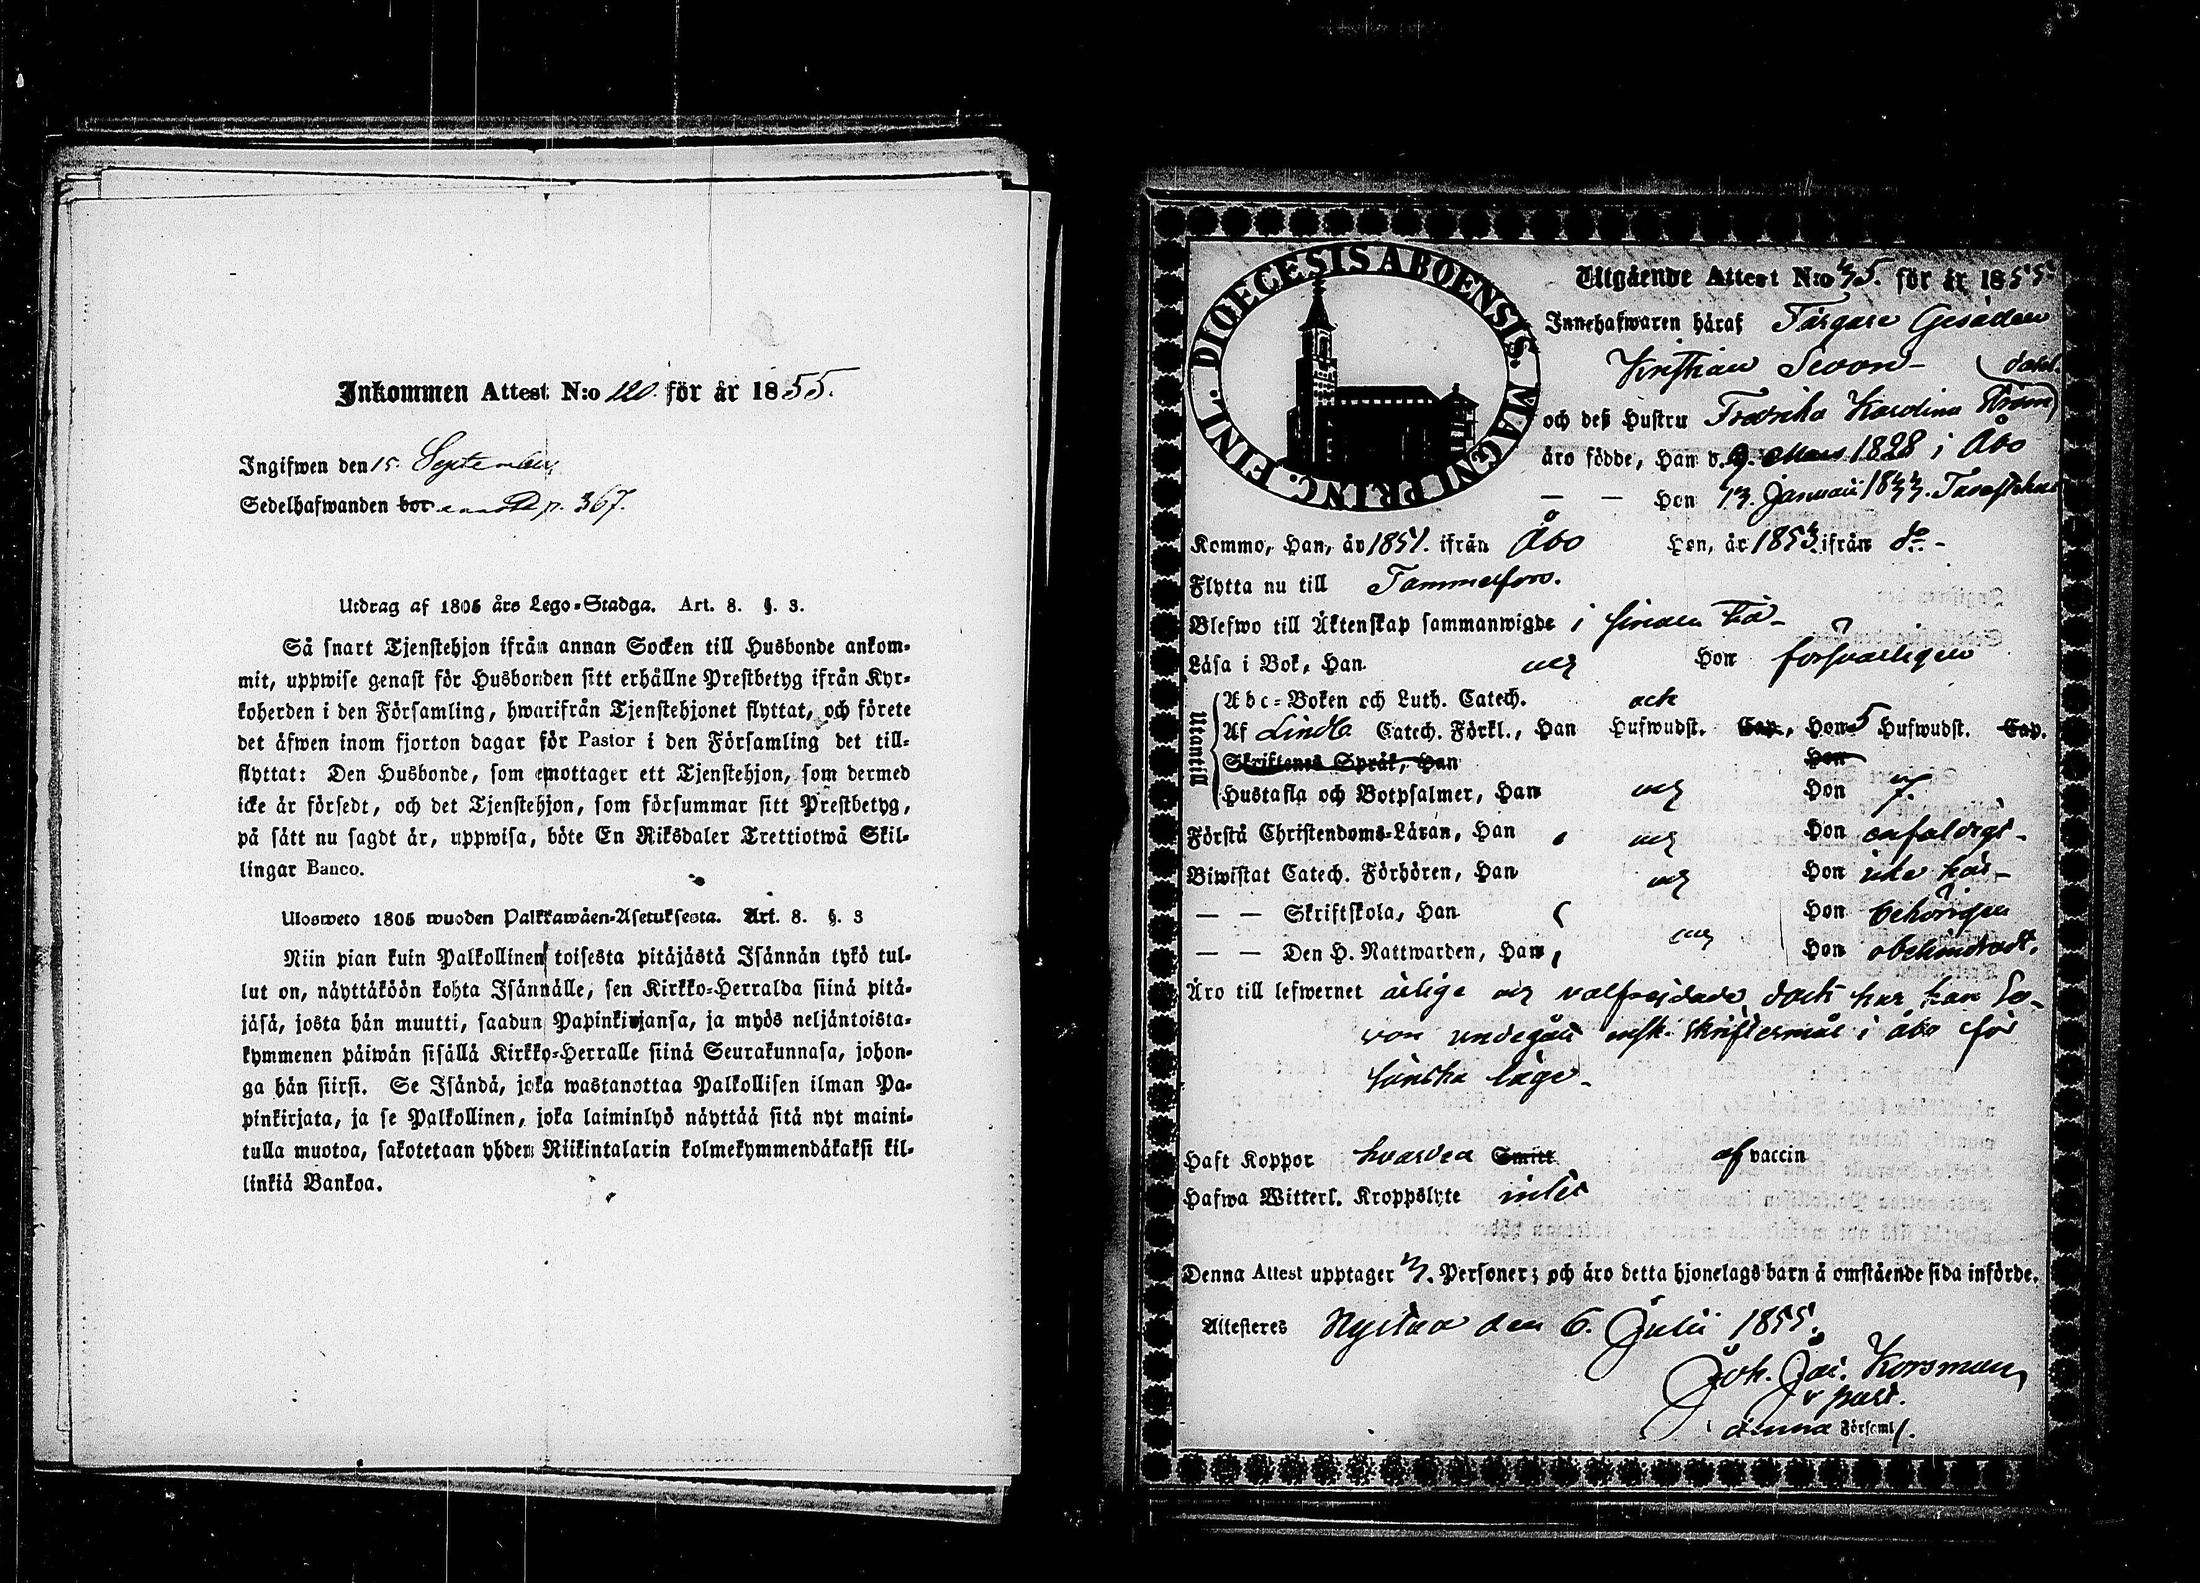 Inkommen Attest N:o 120. för år 1855.
Ingifwen den 15. September
Sedelhafwanden bor p. 367.
Utdrag af 1805 års Lego-Stadga. Art. 8. §. 3.
Så snart Tjenstehjon ifrån annan Socken till Husbonde ankom-
mit, uppwise genast för Husbonden sitt erhållne Prestbetyg ifrån Kyr-
koherden i den Församling, hwarifrån Tjenstehjonet flyttat, och förete
det äfwen inom fjorton dagar för Pastor i den Församling det till-
flyttat: Den Husbonde, som emottager ett Tjenstehjon, som dermed
icke är försedt, och det Tjenstehjon, som försummar sitt Prestbetyg,
på sätt nu sagdt är, uppwisa, böte En Riksdaler Trettiotwå Skil-
lingar Banco.
Ulosweto 1805 wuoden Palkkawäen-Asetuksesta. Art. 8. §. 3
Niin pian kuin Palkollinen toisesta pitäjästä Isännän tykö tul-
lut on, näyttäköön kohta Isännälle, sen Kirkko-Herralda siinä pitä-
jäsä, josta hän muutti, saadun Papinkirjansa, ja myös neljäntoista-
kymmenen päiwän sisällä Kirkko-Herralle siinä Seurakunnasa, johon-
ga hän siirsi. Se Isändä, joka wastanottaa Palkollisen ilman Pa-
pinkirjata, ja se Palkollinen, joka laiminlyö näyttää sitä nyt maini-
tulla muotoa, sakotetaan yhden Riikintalarin kolmekymmendäkaksi kil-
linkiä Bankoa.
DIOECESIS ABOENSIS. MAGNI PRINC. FINL.
Utgående Attest N:o 35. för år 1855
Innehafwaren häraf Färgare Gesällen
Kristian Sevon-
och deß Hustru Fredrika Karolina Ström
äro födde, Han d. 9. Mars 1828 i Åbo
— — Hon 13. Januarii 1833. Tavastehus
Kommo, Han, år 1851. ifrån Åbo Hon, år 1853 ifrån do -
Flytta nu till Tammerfors.
Blefwo till Äktenskap sammanwigde i sinom tid -
Läsa i Bok, Han och Hon försvarligen
Utantill
Abc-Boken och Luth. Catech. och
Af Lindb. Catech. Förkl., Han Hufwudst. Cap., Hon 5 Hufwudst. Cap.
Skriftenes Språk, Han Hon
Hustafla och Botpsalmer, Han och Hon
Förstå Christendoms-Läran, Han och Hon enfaldigt -
Biwistat Catech. Förhören, Han och Hon icke här -
— — Skriftskola, Han Hon behörigen
— — Den H. Nattwarden, Han, och Hon obehindradt.
Äro till lefwernet ärlige och välfrejdade, dock har han Se-
von undergått ensk. skriftermål i Åbo för
lönska läge -
Haft Koppor hvardera Smitt af vaccin
Hafwa Witterl. Kroppslyte intet
Denna Attest upptager 3. Personer; och äro detta hjonelags barn å omstående sida införde.
Attesteres Nystad den 6. Julii 1855.
Joh. Jac. Korsman
v past.
i denna Församl.